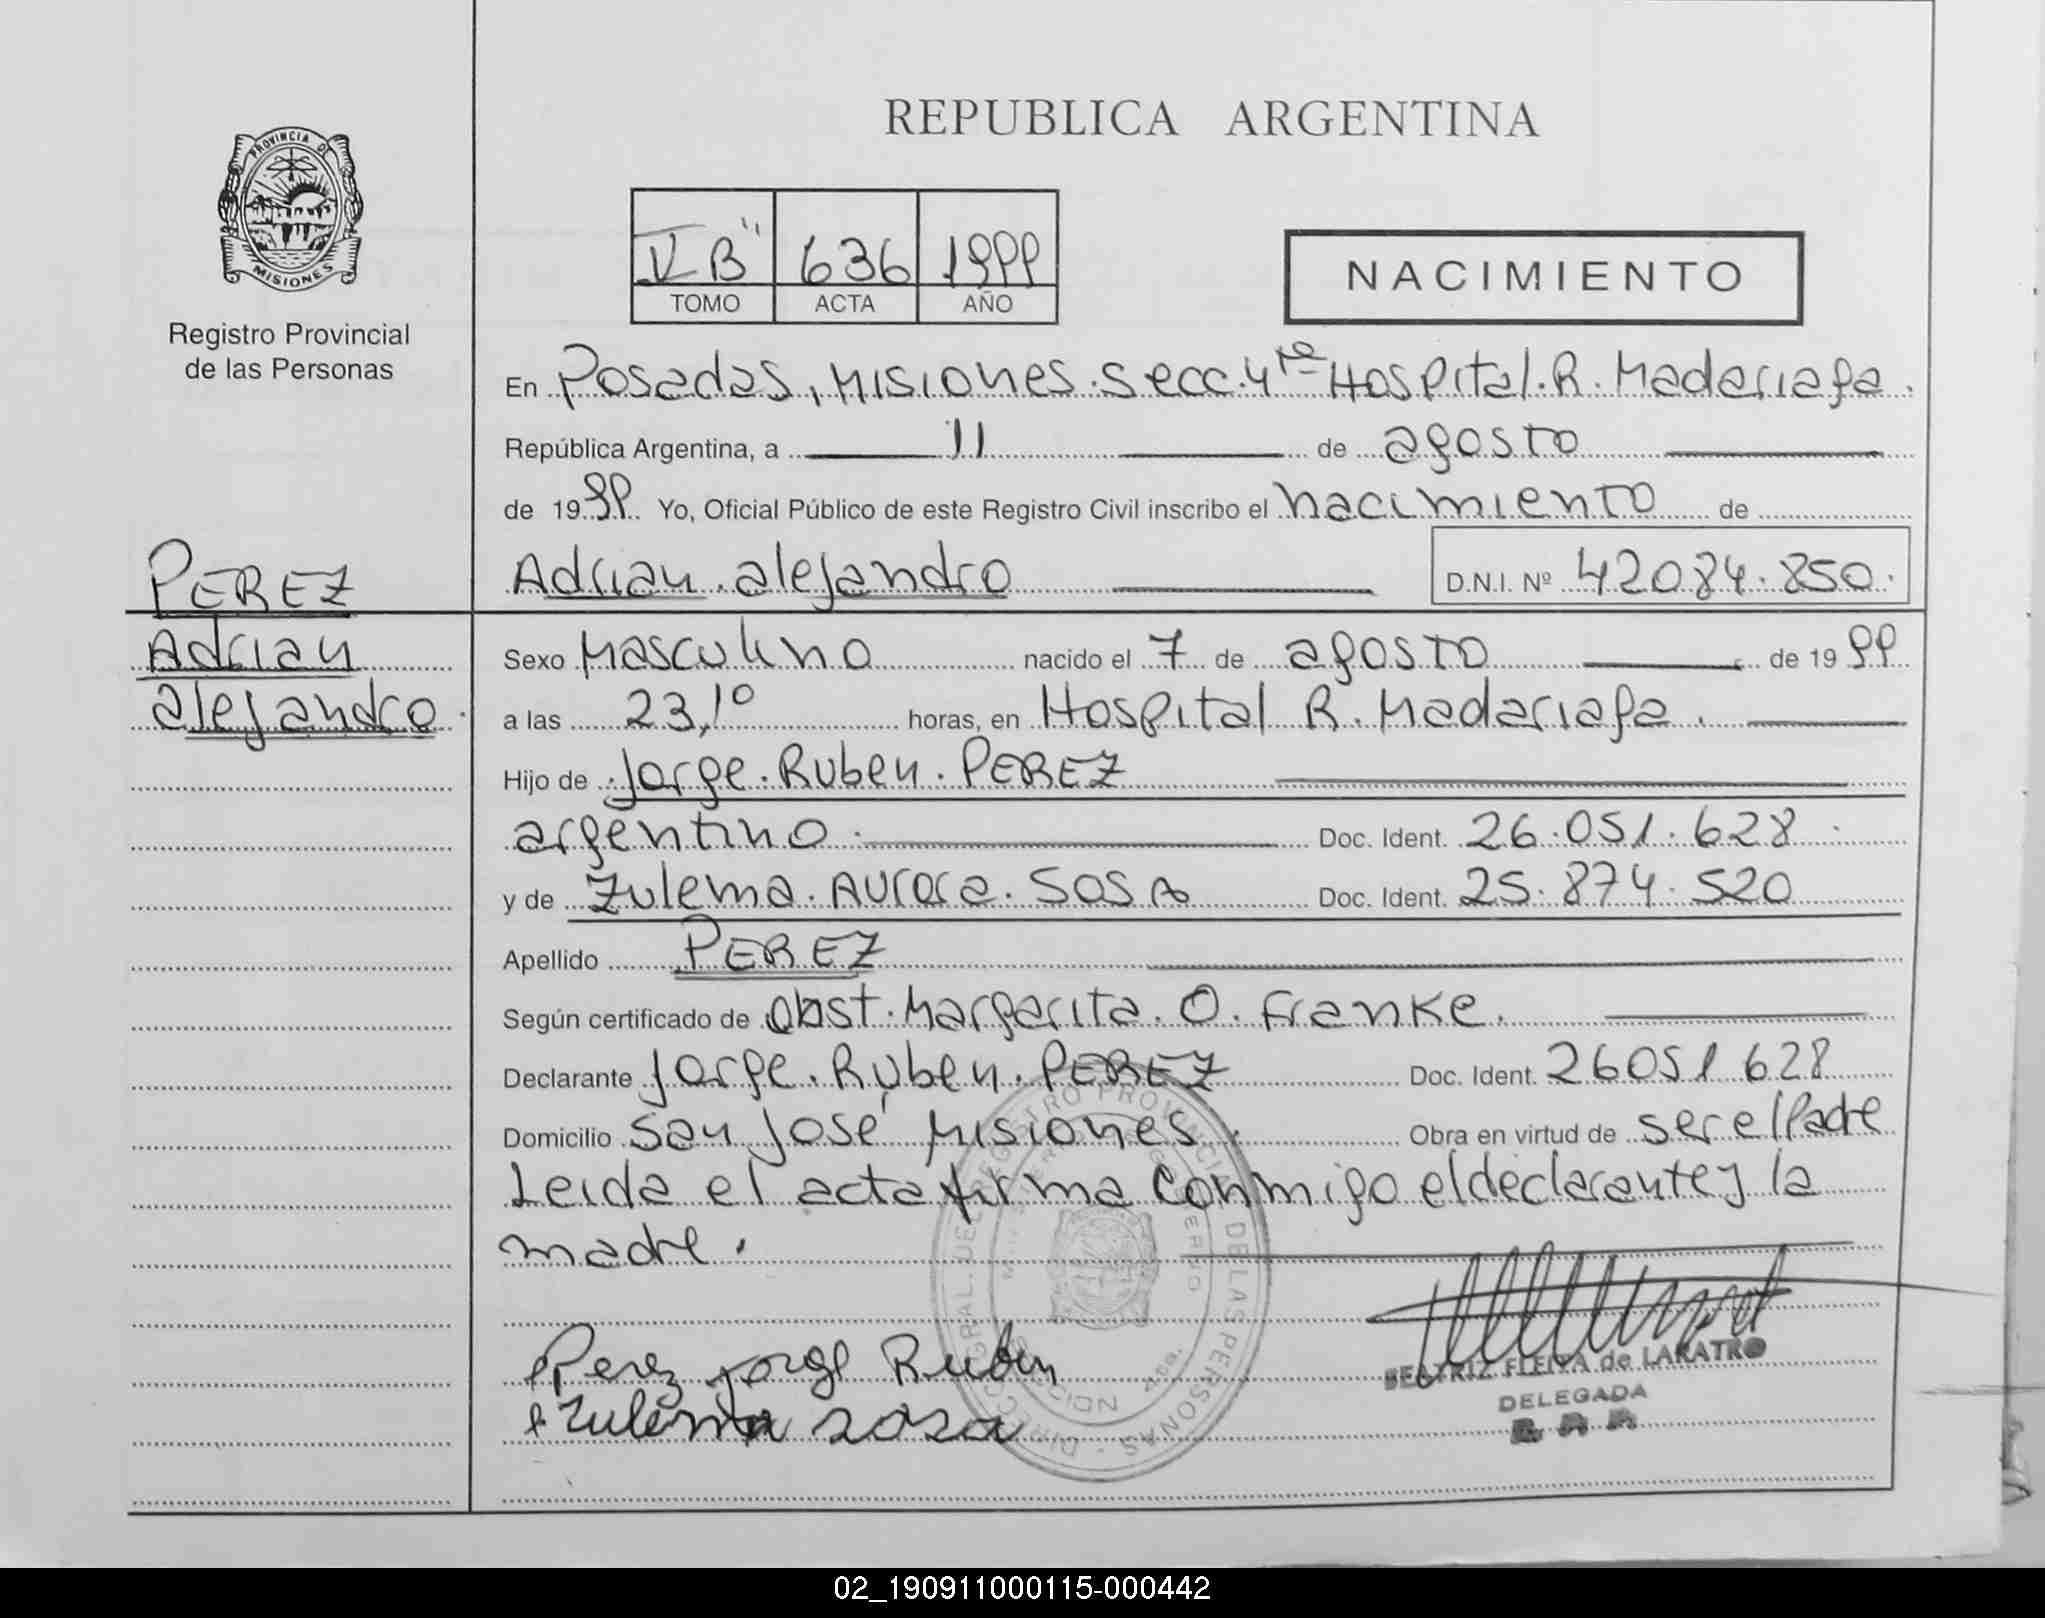 REPUBLICA ARGENTINA
PROVINCIA DE
MISIONES
Registro Provincial
de las Personas
V B" 636 1999
TOMO ACTA AÑO
NACIMIENTO
En Posadas, Misiones. Secc. 4ta Hospital. R. Madariaga.
República Argentina, a 11 de agosto
de 1999 Yo, Oficial Público de este Registro Civil inscribo el nacimiento de
Adrian alejandro D.N.I. Nº 42084.850.
PEREZ
Adrian
alejandro.
Sexo Masculino nacido el 7 de agosto de 1999
a las 23,10 horas, en Hospital R. Madariaga.
Hijo de Jorge. Ruben. PEREZ
argentino. Doc. Ident. 26.051.628.
y de Zulema. Aurora. SOSA Doc. Ident. 25.874.520
Apellido PEREZ
Según certificado de Obst. Margarita. O. Franke.
Declarante Jorge. Ruben. PEREZ Doc. Ident. 26051628
Domicilio San José Misiones. Obra en virtud de ser el Padre
Leida el acta firma conmigo el declarante y la
madre.
Perez Jorge Ruben
Zulema sosa
REGISTRO PROVINCIAL DE LAS PERSONAS
BEATRIZ de LAKATRO
DELEGADA
02_190911000115-000442